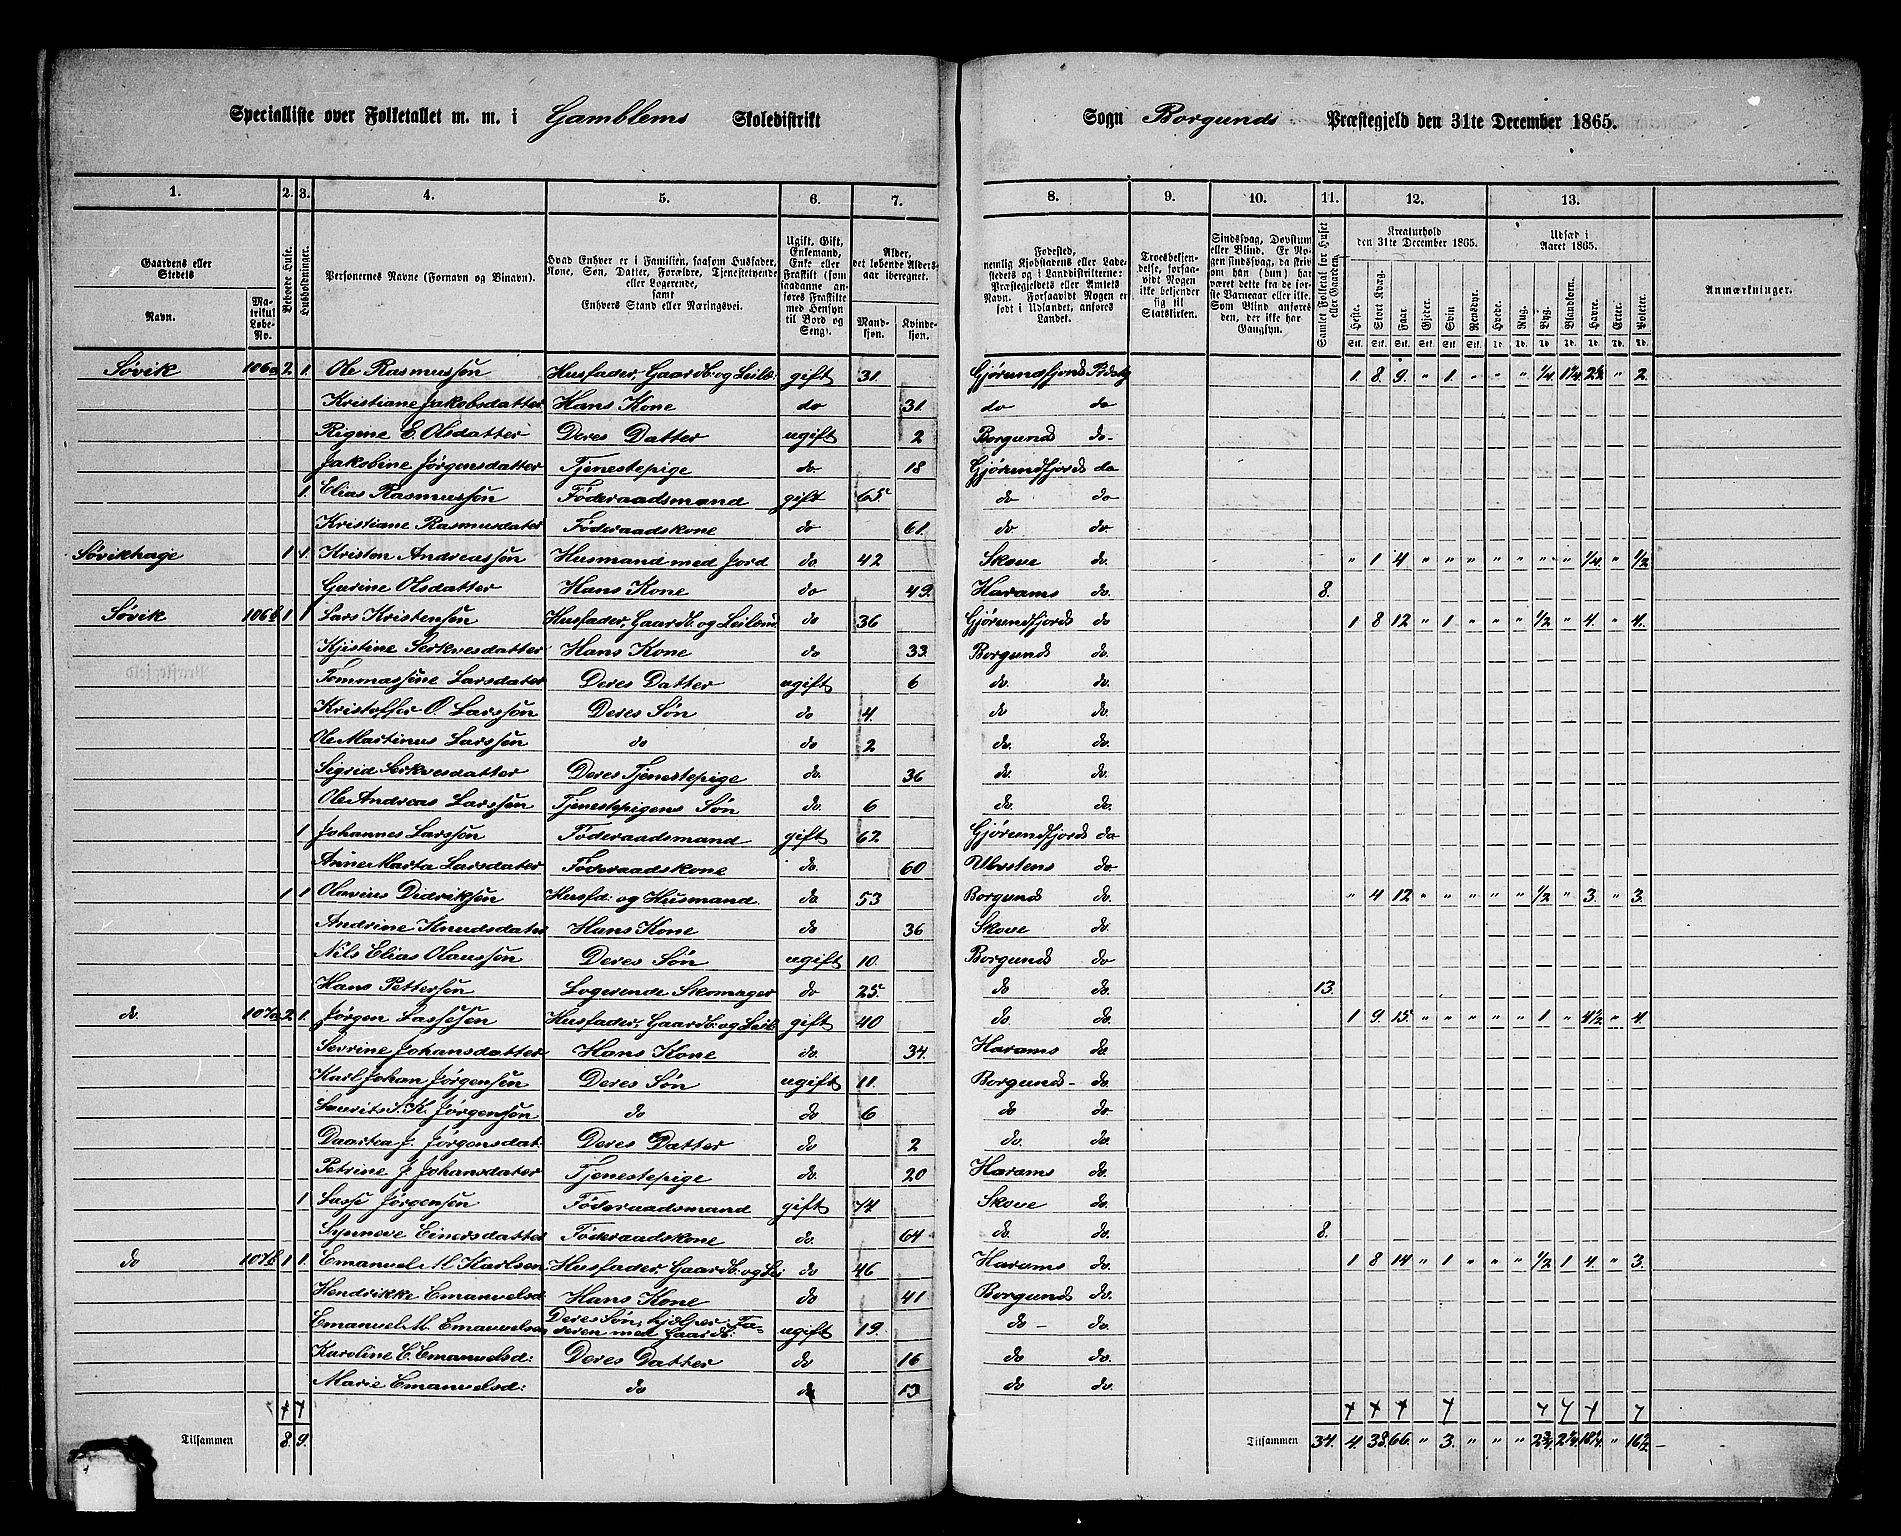 Specialliste over Folketallet m. m. i Gamblems Skoledistrikt Sogn Borgunds Præstegjeld den 31te December 1865.
1. 2. 3. 4. 5. 6. 7. 8. 9. 10. 11. 12. 13.
Gaardens eller Stedets
Navn. Matrikul Løbe-No.
Beboede Huse.
Husholdninger.
Personernes Navne (Fornavn og Binavn).
Hvad Enhver er i Familien, saasom Husfader, Kone, Søn, Datter, Forældre, Tjenestetyende eller Logerende, samt Enhvers Stand eller Næringsvei.
Ugift, Gift, Enkemand, Enke eller Fraskilt (som saadanne anføres Fraskilte med Hensyn til Bord og Seng).
Alder, det løbende Aldersaar iberegnet.
Mandkjøn. Kvindekjøn.
Fødested, nemlig Kjøbstadens eller Ladestedets og i Landdistrikterne: Præstegjeldets eller Amtets Navn. Forsaavidt Nogen er født i Udlandet, anføres Landet.
Troesbekjendelse, forsaavidt Nogen ikke bekjender sig til Statskirken.
Sindssvag, Døvstum eller Blind. Er Nogen sindssvag, da skrives om han (hun) har været dette fra de første Barneaar eller ikke. Som Blind anføres den, der ikke har Gangsyn.
Samlet Folketal for Huset eller Gaarden.
Kreaturhold den 31te December 1865.
Heste. Stort Kvæg. Faar. Gjeder. Svin. Rensdyr.
Udsæd i Aaret 1865.
Hvede. Rug. Byg. Blandkorn. Havre. Erter. Poteter.
Anmærkninger.
Søvik 106a 2 1. Ole Rasmussøn Husfader, Gaardb: og Leilæ: gift 31. Gjørundfjords Prstg 1. 8. 9. " 1. " " " 1/4 1 1/4 2 1/2 " 2.
Kristiane Jakobsdatter Hans Kone do 31. do do
Rigine E. Olsdatter Deres Datter ugift 2 Borgunds do
Jakobine Jørgensdatter Tjenestepige do. 18 Gjørundfjords do
1. Elias Rasmussøn Føderaadsmand gift 65. do do
Kristiane Rasmusdater Føderaadskone do 61. do. do.
Søvikhage 1 1. Kristen Andreassøn Husmand med Jord do 42 Skove do. " 1 4 " " " " " " " 1/4 " 1/2
Gurine Olsdatter Hans Kone do 49. Harams do. 8.
Søvik 106b 1 1 Lars Kristensøn Husfader, Gaardb. og Leilænd do 36 Gjørundfjords do 1 8 12 " 1 " " " 1/2 " 4. " 4.
Kjistine Serkvesdatter Hans Kone do 33. Borgunds do.
Tommassine Larsdater Deres Datter ugift 6 do. do.
Kristoffer O. Larssøn Deres Søn do 4. do do.
Ole Martinus Larssøn do do 2 do. do.
Sigrid Serkvesdatter Deres Tjenestepige do. 36 do. do.
Ole Andreas Larssøn Tjenestepigens Søn do. 6 do. do.
1 Johannes Larssøn Føderaadsmand gift 62 Gjørundfjords do
Anne Marta Larsdater Føderaadskone do. 60 Ulvstens do.
1 1 Olavius Didriksøn Husfd: og Husmand do. 53 Borgunds do " 4 12 " " " " " 1/2 " 3. " 3.
Andrine Knudsdater Hans Kone do 36 Skove do.
Nils Elias Olaussøn Deres Søn ugift 10. Borgunds do
Hans Pettersøn Logerende Skomager do 25. do do. 13.
do. 107a 2 1. Jørgen Lassesøn Husfader, Gaardb: og Leil: gift 40 do. do. 1 9. 15. " " " " " 1 " 4 1/2 " 4.
Sevrine Johansdatter Hans Kone do. 34. Harams do.
Karl Johan Jørgensøn Deres Søn ugift 11. Borgunds do.
Laurits S. K. Jørgensøn do do. 6 do do.
Daartea J. Jørgensdat. Deres Datter do 2 do. do.
Petrine J. Johansdater Tjenestepige do. 20 Harams do.
1 Lasse Jørgensøn Føderaadsmand gift 74 Skove do.
Synnove Einersdatter Føderaadskone do. 64 do. do. 8.
do 107b 1 1. Emanuel M Karlsøn Husfader, Gaardb: og Lei do 46 Harams do. 1 8 14 " 1 " " " 1/2 1 4. " 3.
Hendrikke Emanuelsd Hans Kone do 41 Borgunds do.
Emanuel M. Emanuelsøn Deres Søn, hjelper Faderen med Gaardb: ugift 19. do do.
Karoline E. Emanuelsd: Deres Datter do 16 do do.
Marie Emanuelsd: do do 13 do do.
Tilsammen 8. 9. Tilsammen 34. 4. 38. 66. " 3. " " " 2 3/4 2 1/4 18 1/4 " 16 1/2